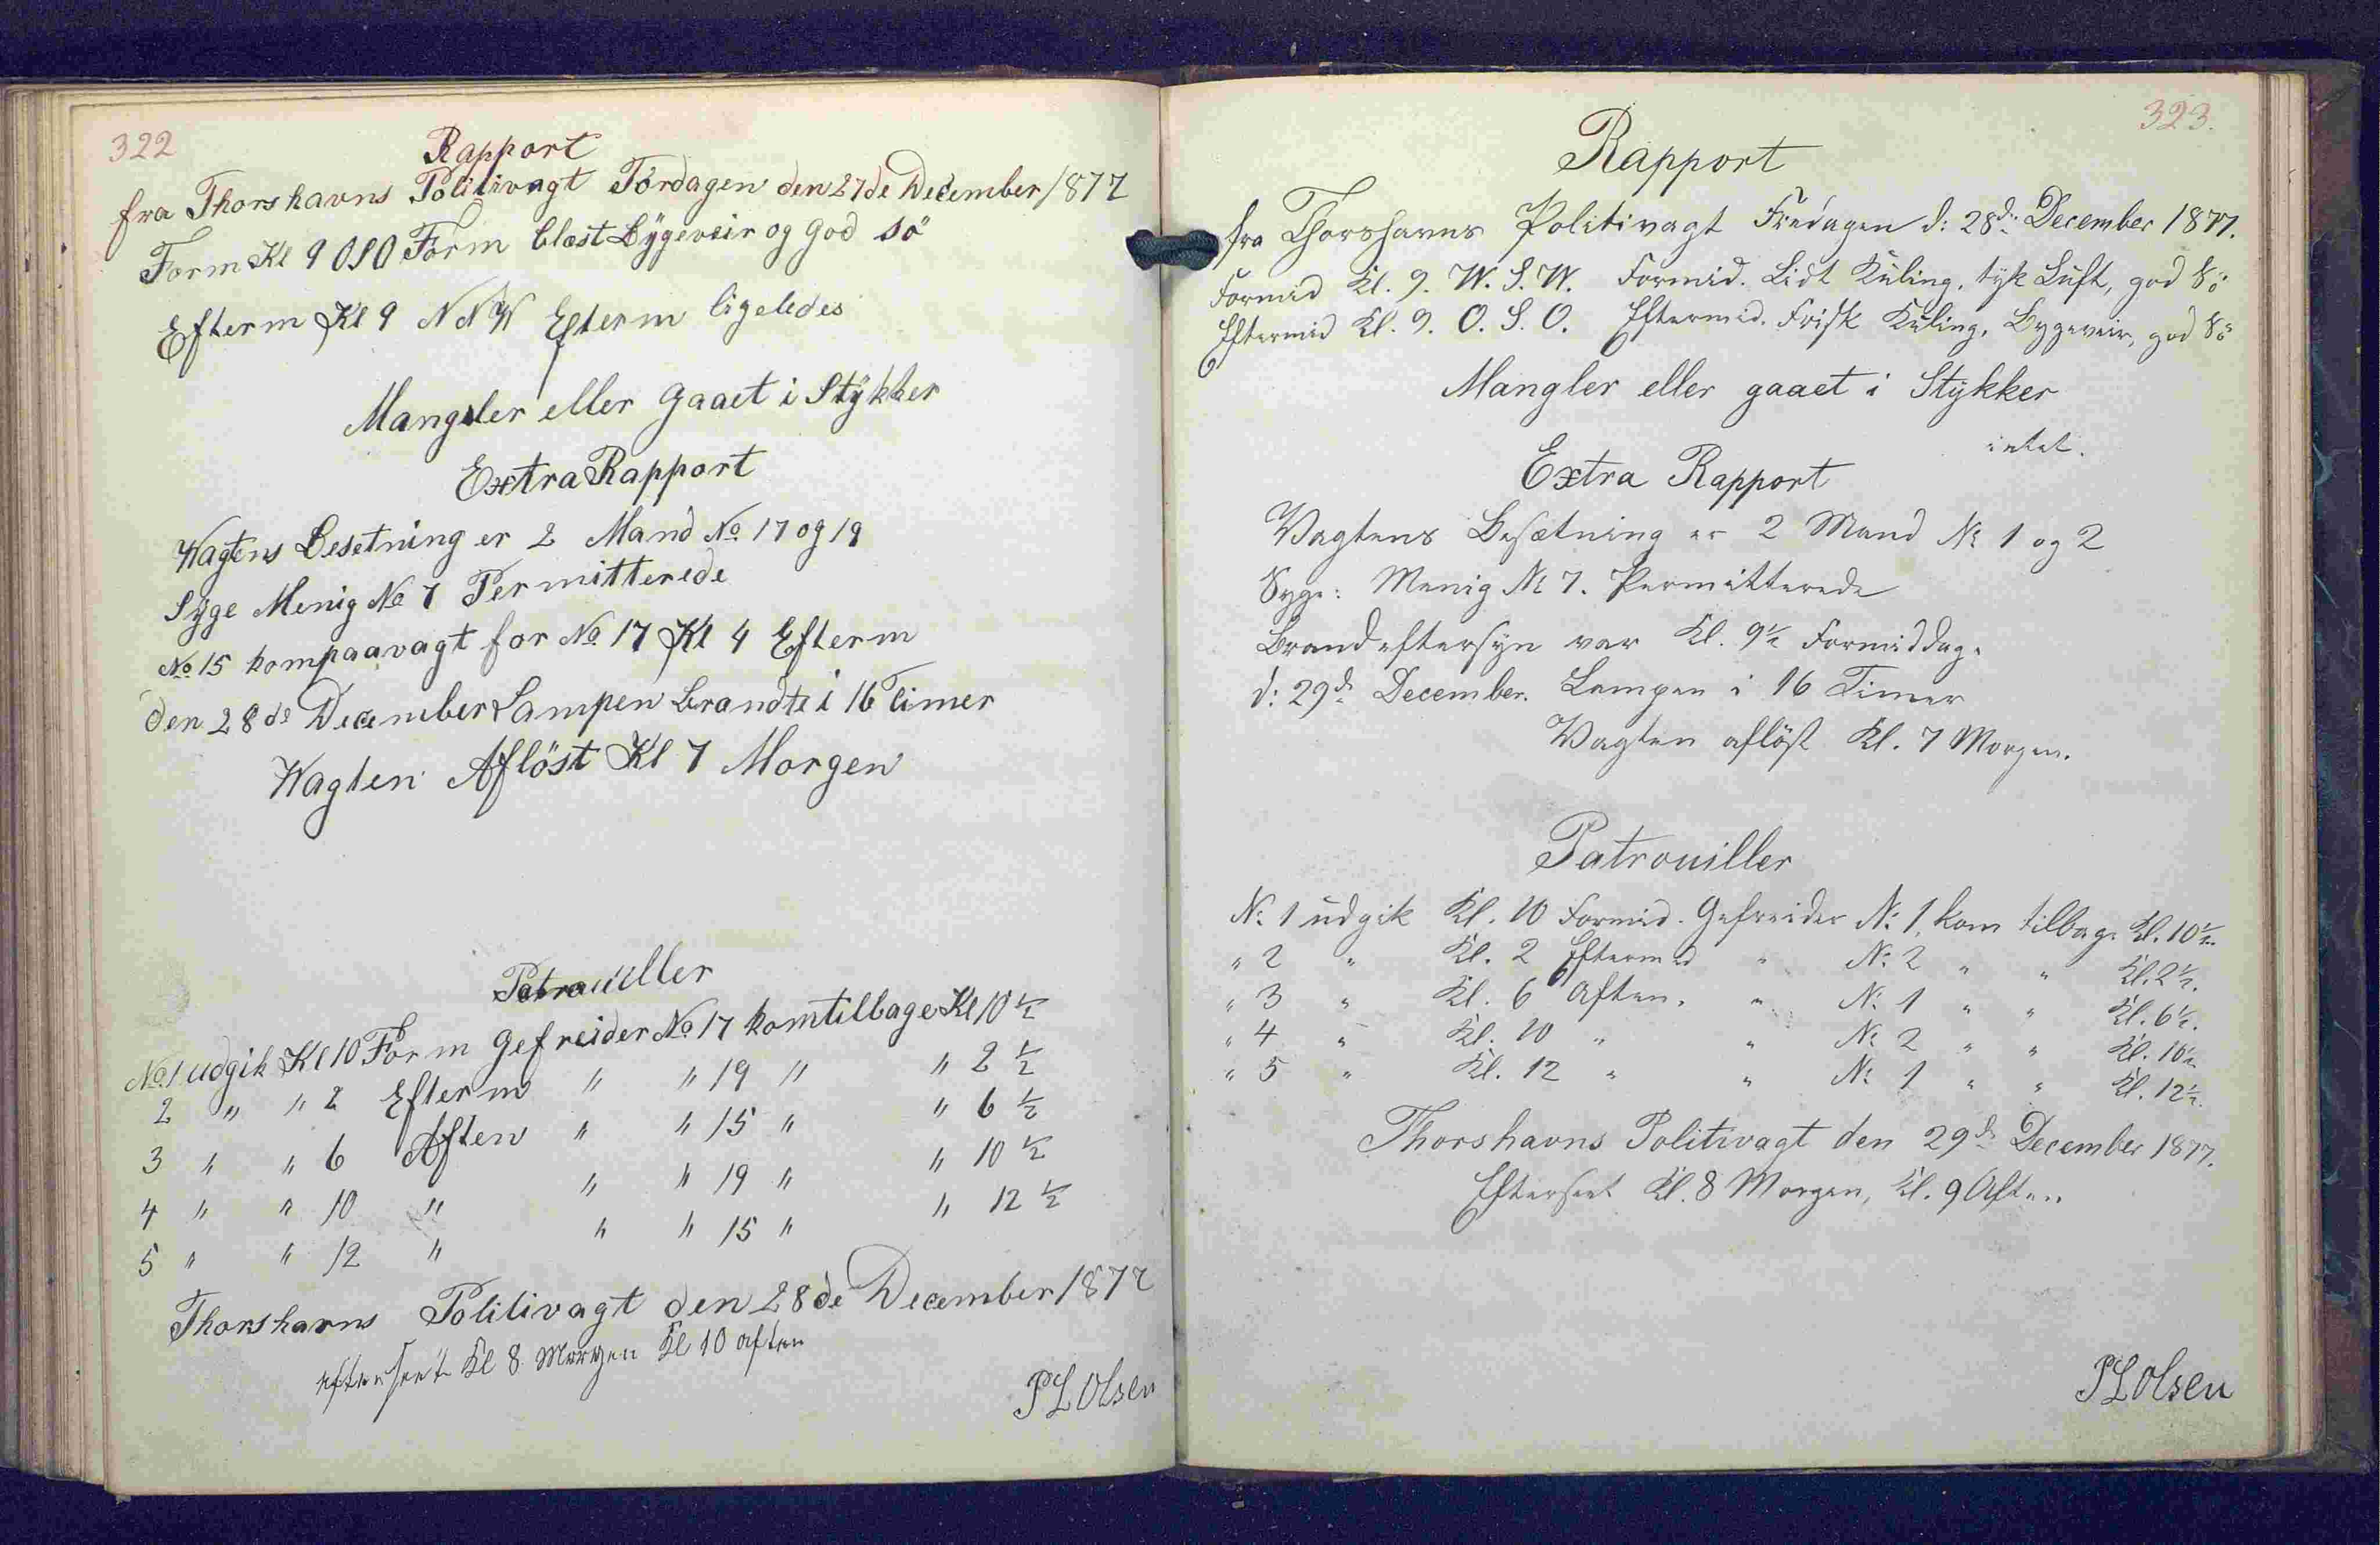 322
Rapport
fra Thorshavns Politivagt Tordagen den 27de December 1877
Form Kl 9 OSO Form blæst Bygeveir og god sö
Efterm Kl 9 NNW Efterm ligeledes
Mangler eller gaaet i Stykker
Extra Rapport
Wagtens Besetning er 2 Mand No 17 og 19
Syge Menig No 7 Permitterede
No 15 kom paa vagt for No 17 Kl 4 Efterm
den 28de December Lampen Brandte i 16 Timer
Wagten Aflöst Kl 7 Morgen
Patrouiller
No 1 udgik Kl 10 Form Gefreider No 17 kom tilbage Kl 10 1/2
2 " " 2 Efterm " " 19 " " 2 1/2
3 " " 6 Aften " " 15 " " 6 1/2
4 " " 10 " " " 19 " " 10 1/2
5 " " 12 " " " 15 " " 12 1/2
Thorshavns Politivagt den 28de December 1877
efterseet Kl 8 Morgen Kl 10 aften
PL Olsen
323.
Rapport
fra Thorshavns Politivagt Fredagen d: 28de December 1877.
Formid Kl. 9. W. S. W. Formid. Lidt Kuling, tyk Luft, god Sö
Eftermid Kl. 9. O. S. O. Eftermid. Frisk Kuling, Bygeveir, god Sö
Mangler eller gaaet i Stykker
intet.
Extra Rapport
Vagtens Besætning er 2 Mand No 1 og 2
Syge: Menig No 7. Permitterede
Brandeftersyn var Kl. 9 1/2 Formiddag.
d: 29de December. Lampen i 16 Timer
Vagten aflöst Kl. 7 Morgen.
Patrouiller
No 1 udgik Kl. 10 Formid. Gefreider No 1, kom tilbage Kl. 10 1/2.
" 2 " Kl. 2 Eftermid " No 2 " " Kl. 2 1/2.
" 3 " Kl. 6 Aften. " No 1 " " Kl. 6 1/2.
" 4 " Kl. 10 " " No 2 " " Kl. 10 1/2
" 5 " Kl. 12 " " No 1 " " Kl. 12 1/2.
Thorshavns Politivagt den 29de December 1877.
Efterseet Kl. 8 Morgen, Kl. 9 Aften.
PL Olsen